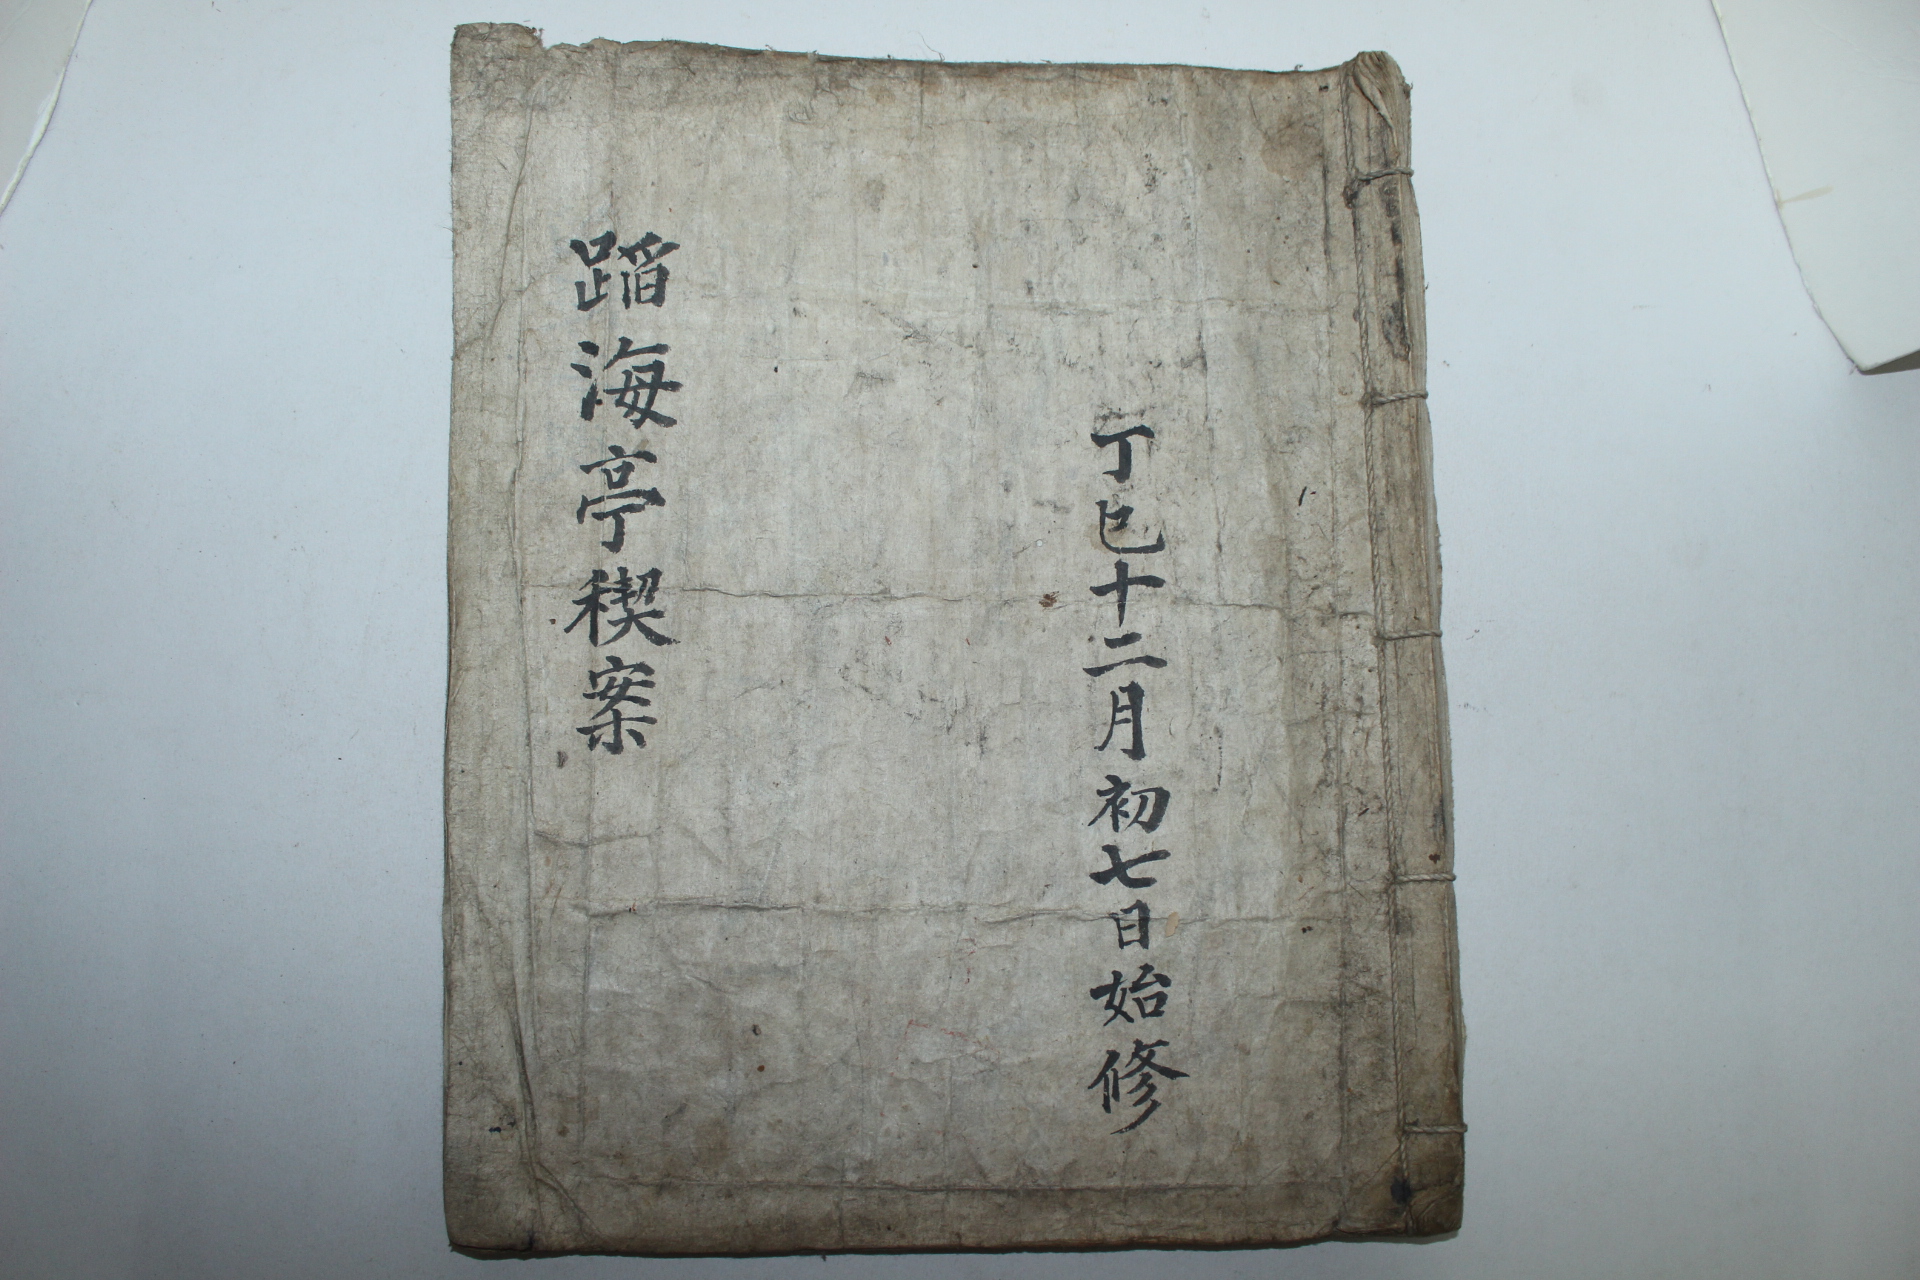 丁巳十二月初七日始修
蹈海亭稧案